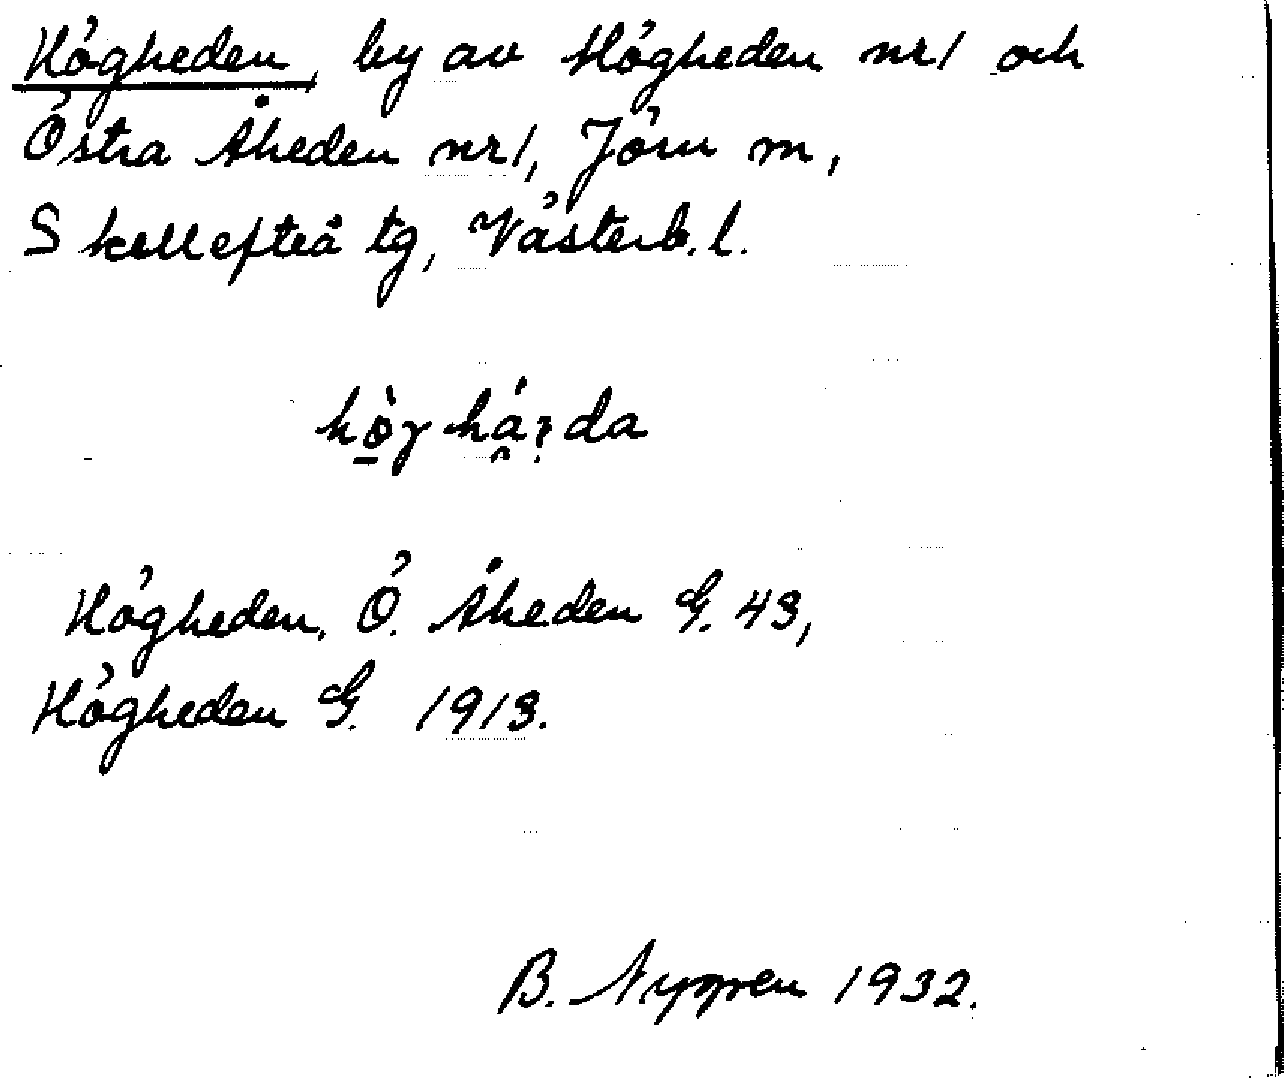 Högheden, by av Högheden nr 1 och
Östra Åheden nr 1, Jörn sn,
Skellefteå tg, Västerb. l.
Högheden, Ö. Åheden G. 43,
Högheden G. 1913.
B. Nyppen 1932.